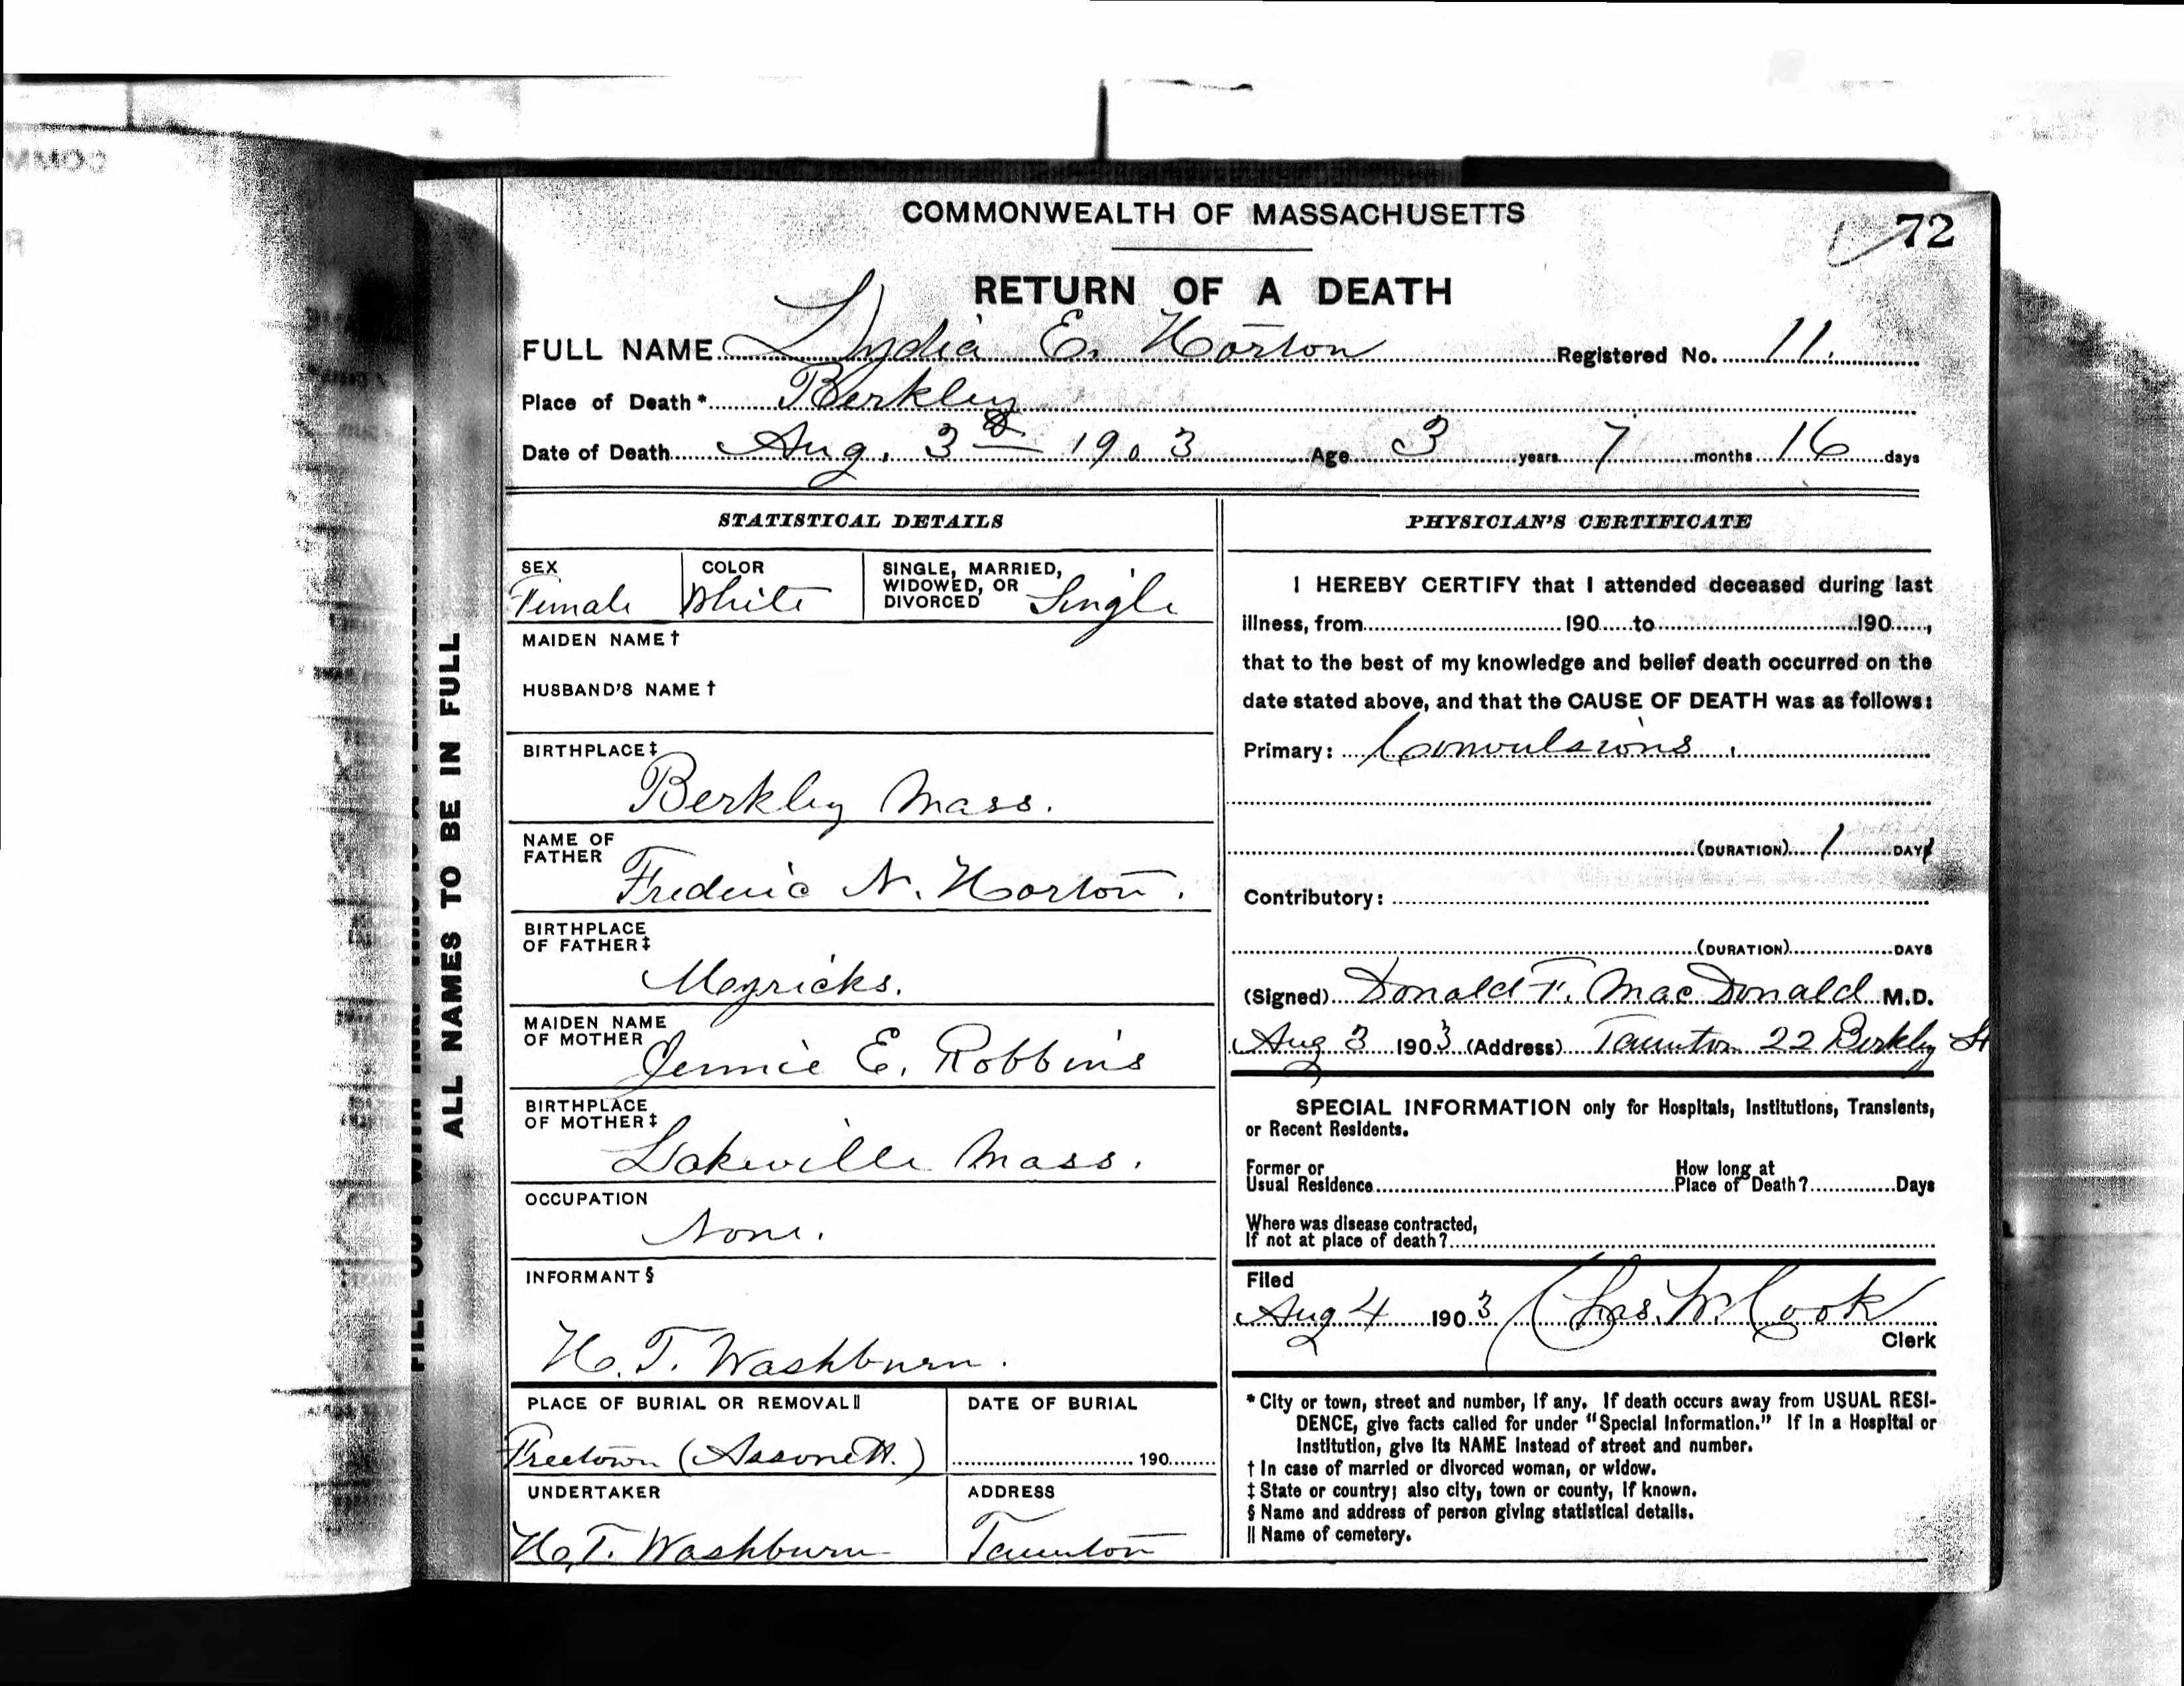 COMMONWEALTH OF MASSACHUSETTS
72
RETURN OF A DEATH
FULL NAME Lydia E. Horton Registered No. 11.
Place of Death* Berkley
Date of Death Aug. 3d 1903 Age 3 years 7 months 16 days
STATISTICAL DETAILS
SEX Female COLOR White SINGLE, MARRIED, WIDOWED, OR DIVORCED Single
MAIDEN NAME †
HUSBAND'S NAME †
BIRTHPLACE ‡
Berkley Mass.
NAME OF FATHER
Frederic N. Horton.
BIRTHPLACE OF FATHER ‡
Myricks.
MAIDEN NAME OF MOTHER
Jennie E. Robbins
BIRTHPLACE OF MOTHER ‡
Lakeville Mass.
OCCUPATION
None.
INFORMANT §
H. T. Washburn.
PLACE OF BURIAL OR REMOVAL || DATE OF BURIAL
Freetown (Assonett.) 190
UNDERTAKER ADDRESS
H. T. Washburn Taunton
PHYSICIAN'S CERTIFICATE
I HEREBY CERTIFY that I attended deceased during last
illness, from 190 to 190 ,
that to the best of my knowledge and belief death occurred on the
date stated above, and that the CAUSE OF DEATH was as follows:
Primary: Convulsions
(DURATION) 1 DAY
Contributory:
(DURATION) DAYS
(Signed) Donald T. MacDonald M.D.
Aug 3 1903 (Address) Taunton 22 Berkley St
SPECIAL INFORMATION only for Hospitals, Institutions, Transients,
or Recent Residents.
Former or Usual Residence How long at Place of Death? Days
Where was disease contracted,
If not at place of death?
Filed
Aug 4 1903 Chas. W. Cook
Clerk
* City or town, street and number, if any. If death occurs away from USUAL RESI-
DENCE, give facts called for under "Special Information." If in a Hospital or
Institution, give its NAME instead of street and number.
† In case of married or divorced woman, or widow.
‡ State or country; also city, town or county, if known.
§ Name and address of person giving statistical details.
|| Name of cemetery.
ALL NAMES TO BE IN FULL